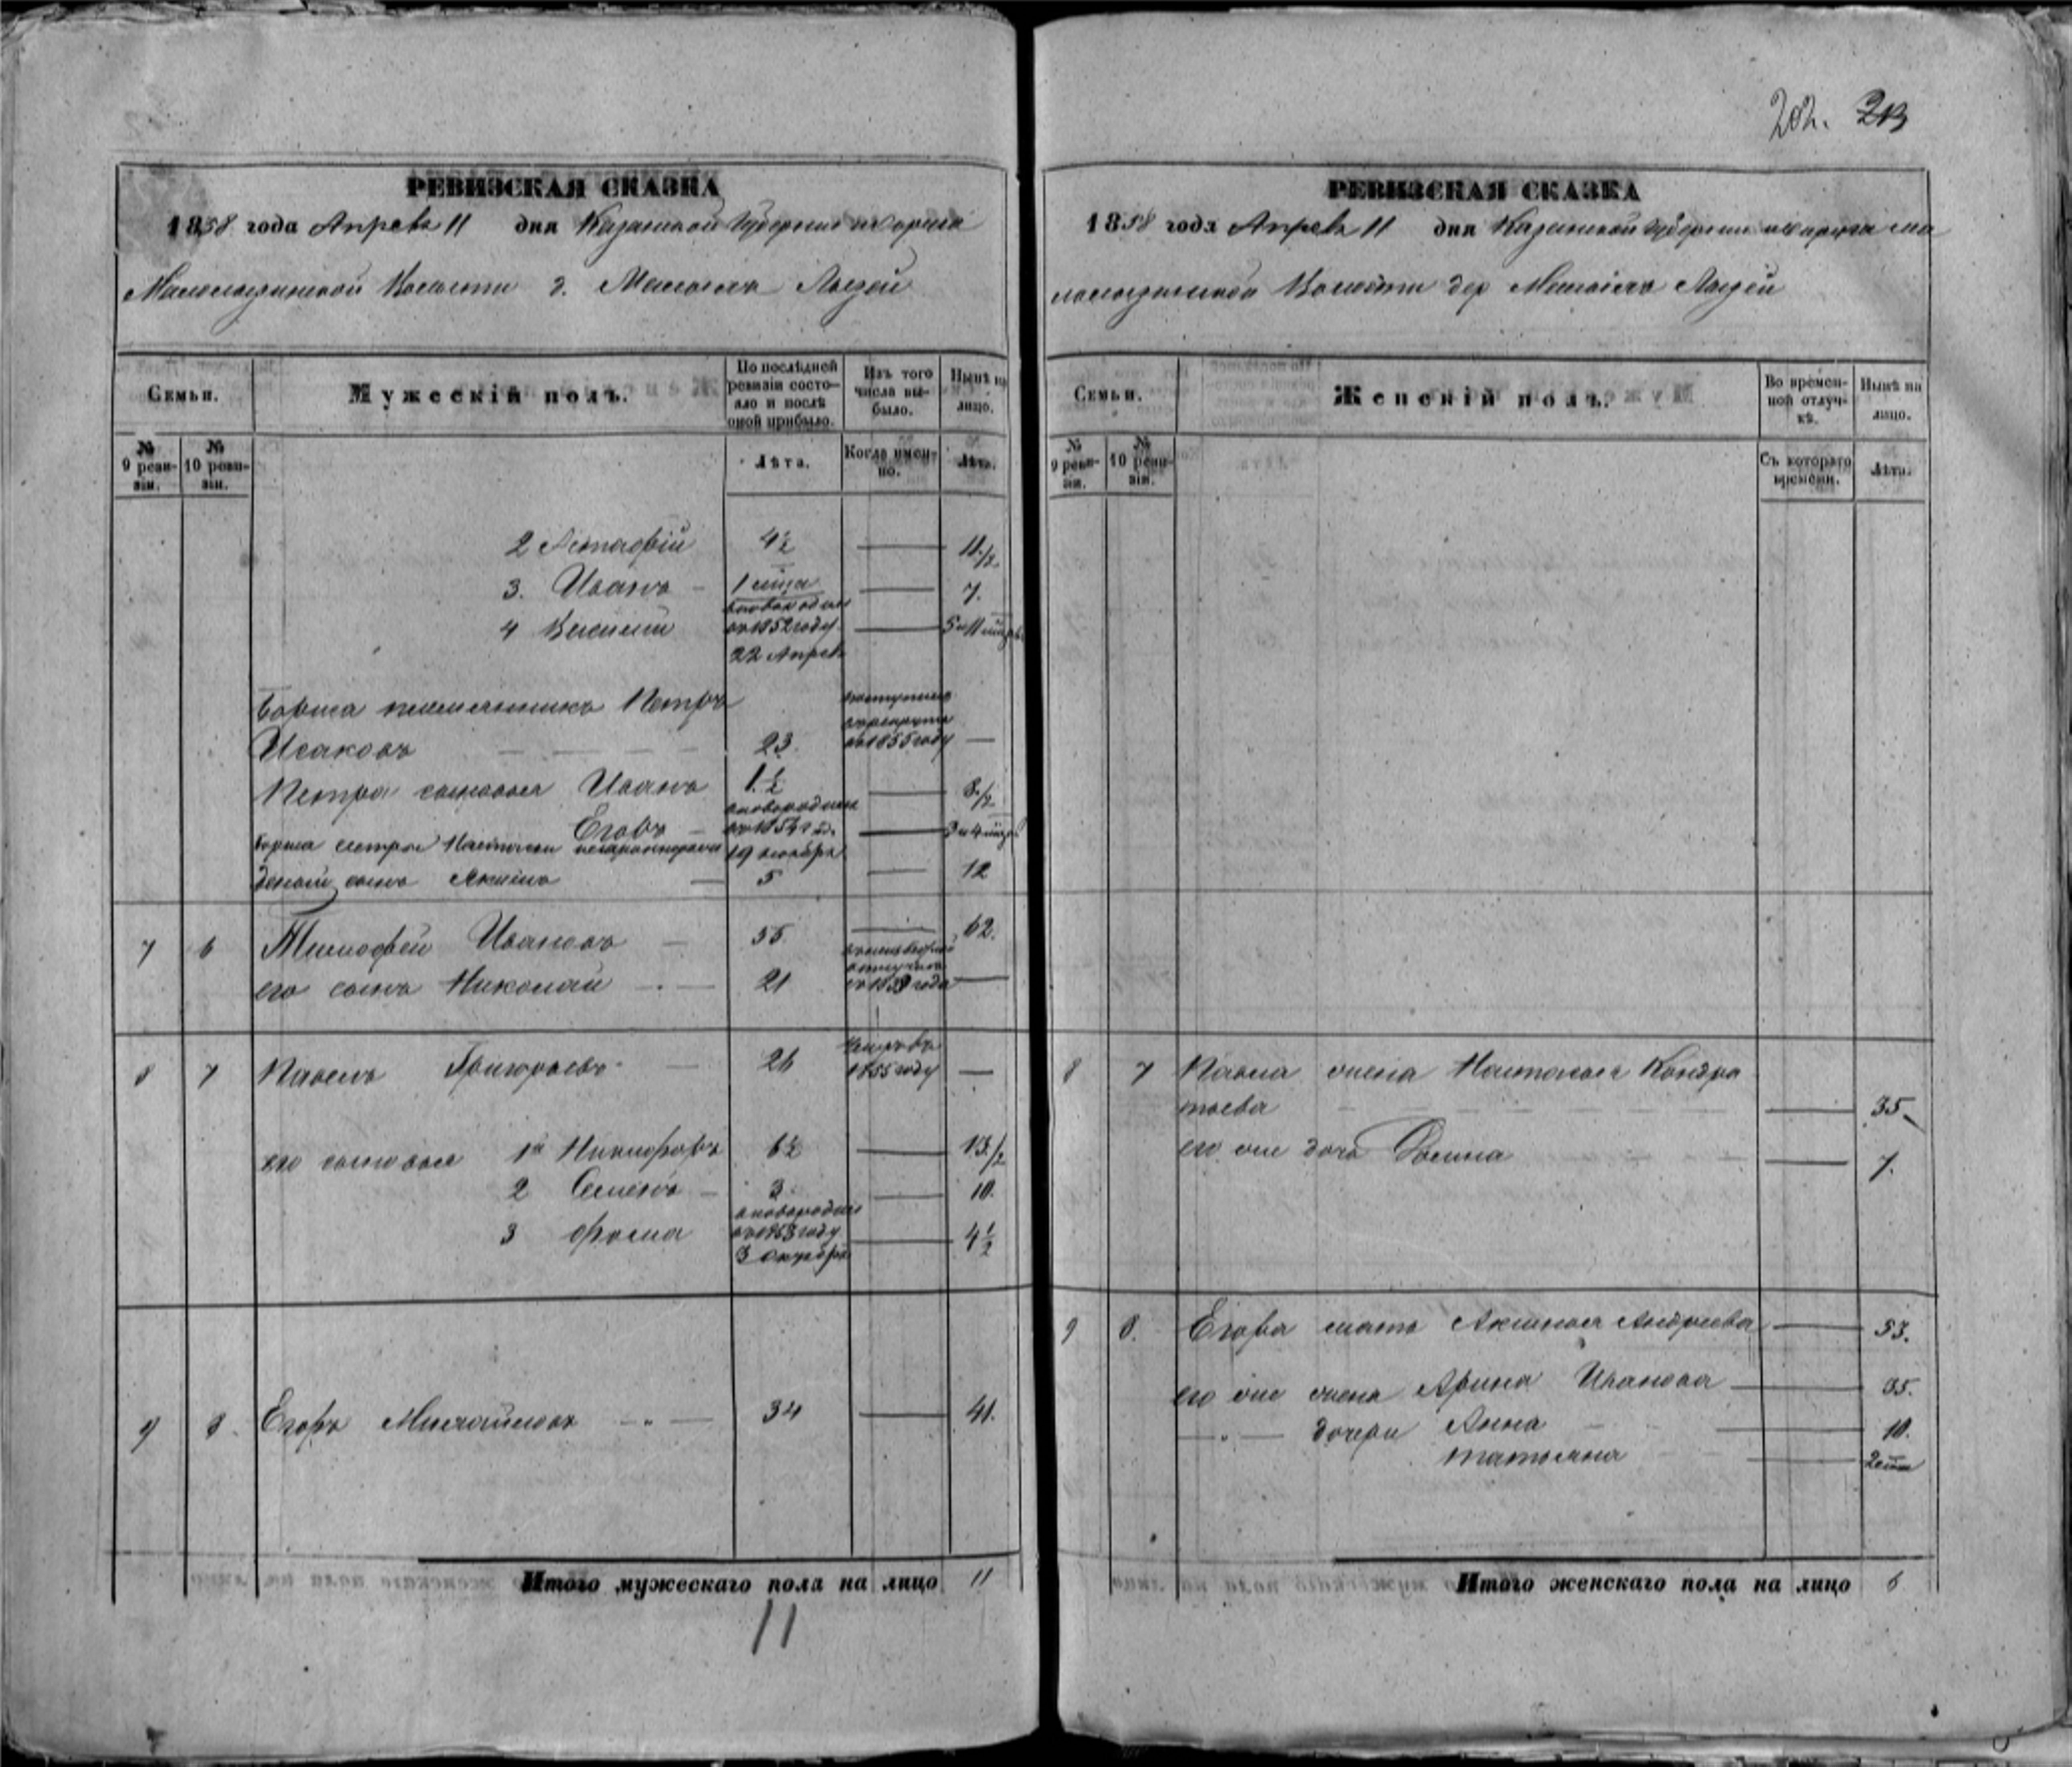 202. 213
РЕВИЗСКАЯ СКАЗКА
1858 года Апреля 11 дня Казанской Губернии и округа
Волости д. Малыхъ Лызей
Семьи.
Мужескій полъ.
По послѣдней ревизіи состояло и послѣ оной прибыло.
Изъ того числа выбыло.
Нынѣ на лицо.
№ 9 ревизіи.
№ 10 ревизіи.
Лѣта.
Когда именно.
Лѣта.
2 Астафій 4½ — 11½
3. Иванъ — 1 — 7.
4 Василий новорожден въ 1852 году 22 Апреля — 5 и 11
Бориса племянникъ Петръ
Исаковъ 23. поступилъ в рекруты въ 1855 году —
Петра сыновья Иванъ 1½ — 8½
Егоръ — новорожден въ 1854 19 Ноября — 3 и 4
Бориса сестры Настасьи незаконнорож
денный сынъ Акимъ — 5 — 12
7 6 Тимофей Ивановъ — 55. — 62.
его сынъ Николай — 21 —
8 7 Павелъ Григорьевъ — 26 Умеръ въ 1855 году —
его сыновья 1й Никифоръ 6½ — 13½
2 Семенъ — 3 — 10.
3 Фома новорожден въ 1853 году 3 Октября — 4½
9 8. Егоръ Михайловъ — 34 — 41.
Итого мужескаго пола на лицо 11
11
РЕВИЗСКАЯ СКАЗКА
1858 года Апреля 11 дня Казанской Губернии и округа Ма
Волости дер Малыхъ Лызей
Семьи.
Женскій полъ.
Во временной отлучкѣ.
Нынѣ на лицо.
№ 9 ревизіи.
№ 10 ревизіи.
Съ котораго времени.
Лѣта.
8 7 Павла жена Настасья Кондра
тьева — 35
его же дочь — 7.
9 8. Егора мать Аксинья Андреева — 53.
его же жена Арина Иванова — 35.
—"— дочери Анна — 10.
Татьяна — 2
Итого женскаго пола на лицо 6